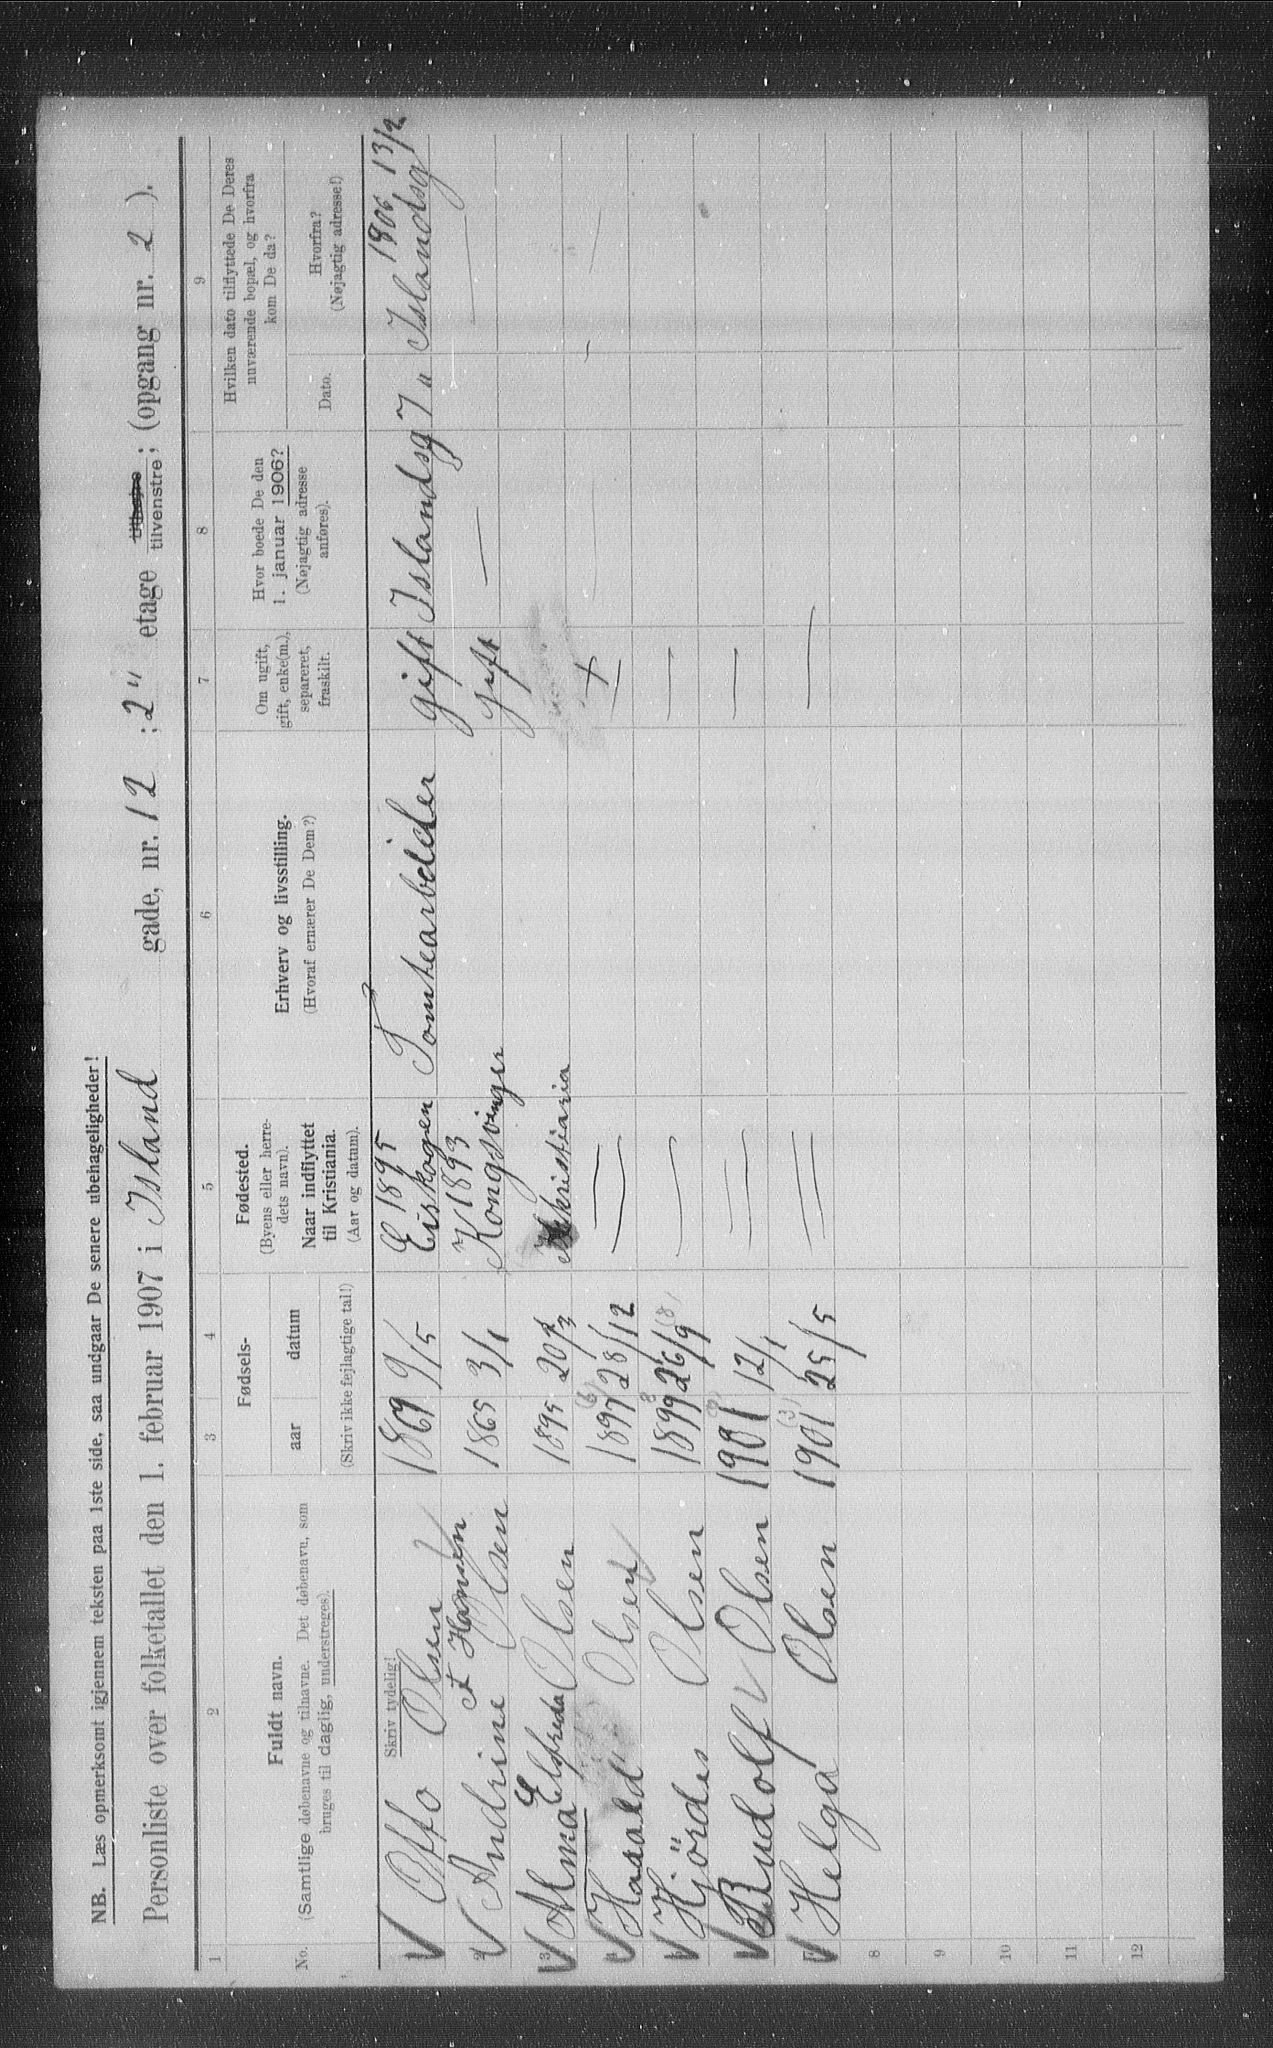 NB. Læs opmerksomt igjennem teksten paa 1ste side, saa undgaar De senere ubehageligheder!
Personliste over folketallet den 1. februar 1907 i Island gade, nr. 12 ; 2" etage tilvenstre; (opgang nr. 2 ).
1 2 3 4 5 6 7 8 9
No.
Fuldt navn.
(Samtlige døbenavne og tilnavne. Det døbenavn, som
bruges til daglig, understreges).
Skriv tydelig!
Fødsels-
aar datum
(Skriv ikke fejlagtige tal!)
Fødested.
(Byens eller herre-
dets navn).
Naar indflyttet
til Kristiania.
(Aar og datum).
Erhverv og livsstilling.
(Hvoraf ernærer De Dem?)
Om ugift,
gift, enke(m.),
separeret,
fraskilt.
Hvor boede De den
1. januar 1906?
(Nøjagtig adresse
anføres).
Hvilken dato tilflyttede De Deres
nuværende bopæl, og hvorfra
kom De da?
Dato.
Hvorfra?
(Nøjagtig adresse!)
1895 1906 13/2
Otto Olsen 1869 9/5 Eidskogen Tomtearbeider gift Islandsg 7 " Islandsg
f Hansen 1893
2 Andrine Olsen 1865 3/1 Kongsvinger gift — —
3 Alma Elfrida Olsen 1895 20/3 Kristiania
Harald Olsen 1897 28/12 — —
Hjördis Olsen 1899 26/9 — —
Rudolf Olsen 1901 12/1 — —
Helga Olsen 1901 (3) 25/5 — —
8
9
10
11
12